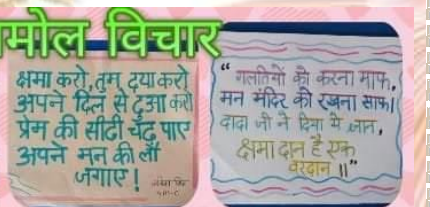 मोल विचार
क्षमा करो, तुम दया करो
अपने दिल से दुआ करो
प्रेम की सीढी चढ़ पाए
अपने मन की लौ
जगाए !
“गलतियों को करना माफ,
मन मंदिर को रखना साफ।
दादा जी ने दिया ये ज्ञान,
क्षमा दान है एक
वरदान ॥”